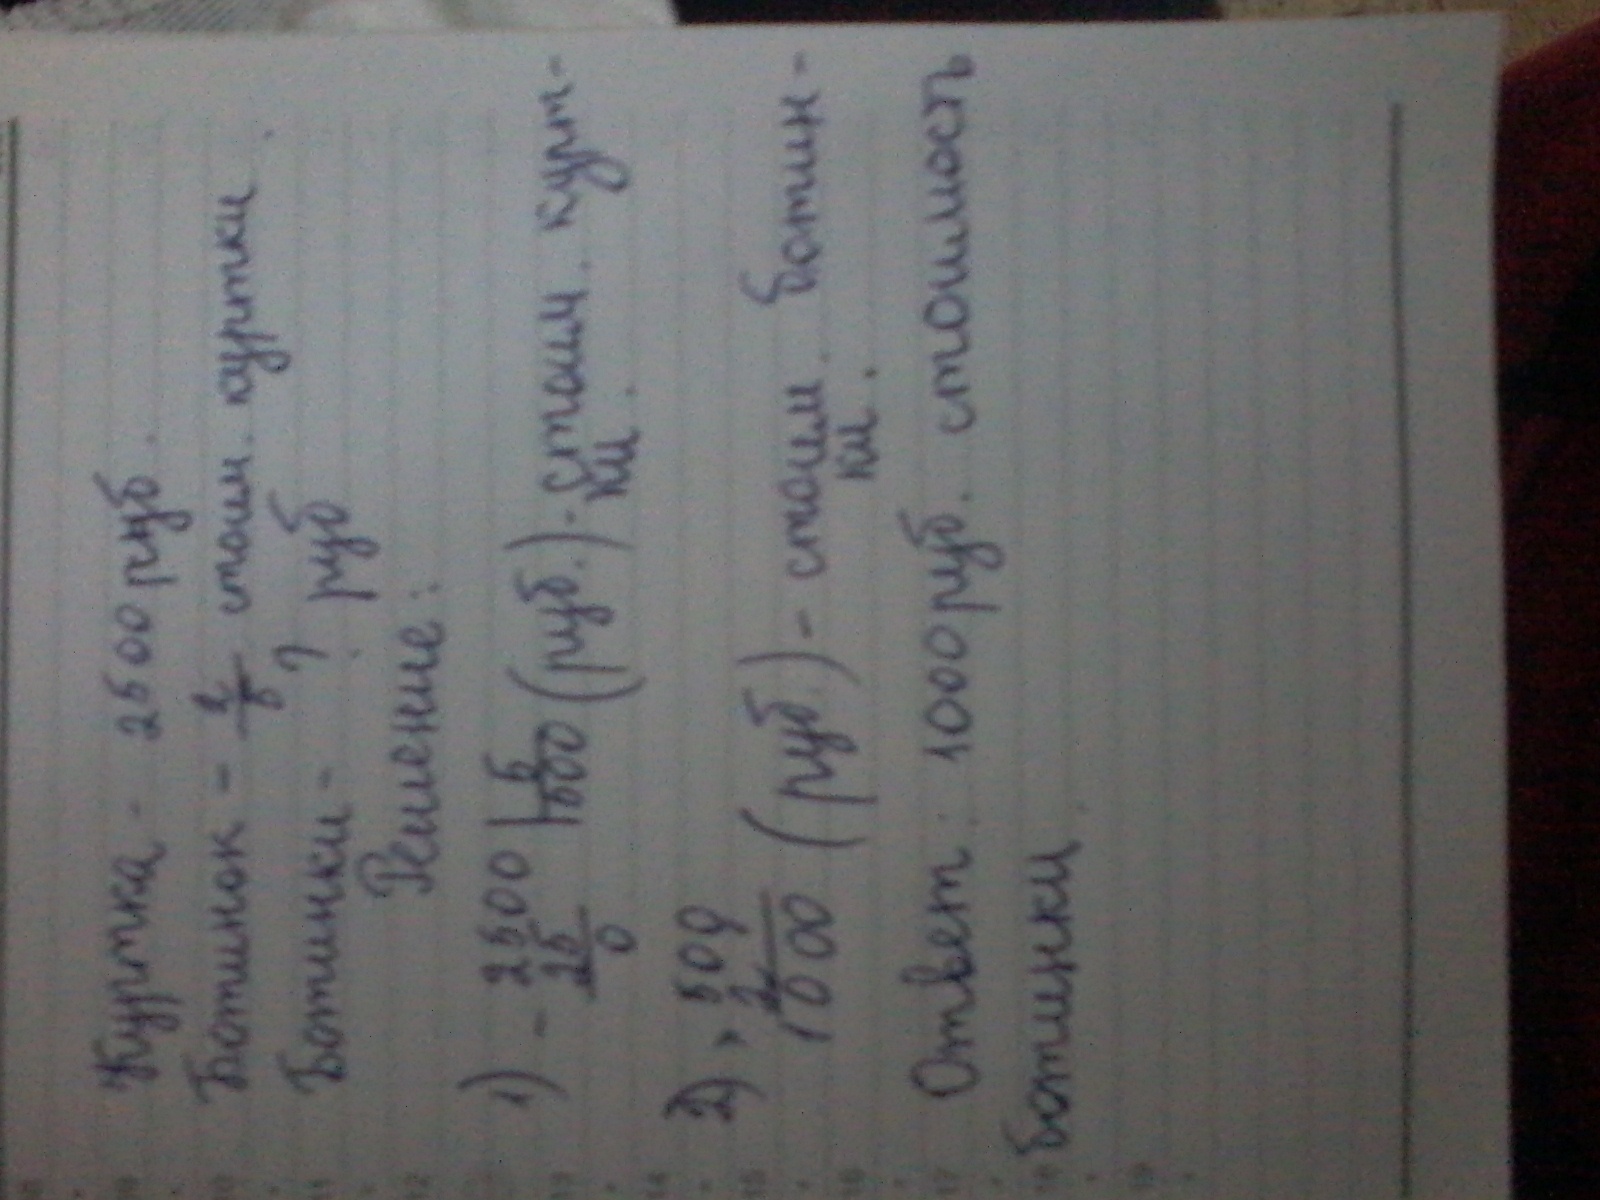 Куртка - 2500 руб.
Ботинок - 1/5 стоим. куртки.
Ботинки - ? руб
Решение:
1) - 2500 | 5
25 500 (руб.) - стоим. курт-
0 ки.
2) × 500
2
1000 (руб.) - стоим. ботин-
ки.
Ответ: 1000 руб. стоимость
ботинки
10
11
12
13
14
15
16
17
18
19